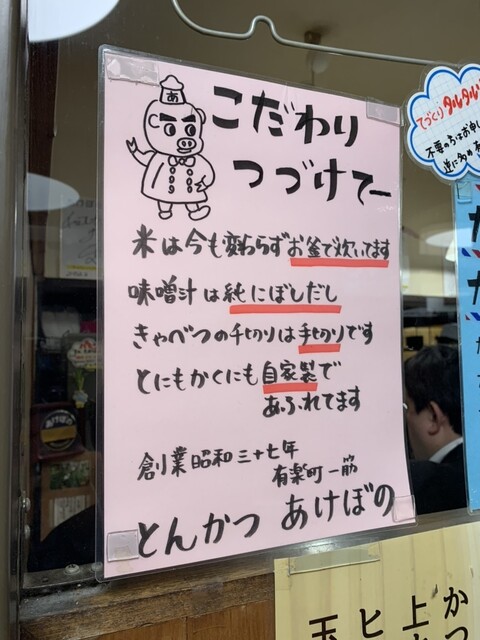 あ
こだわり
つづけてー
米は今も変わらずお釜で炊いてます
味噌汁は純にぼしだし
きゃべつの千切りは手切りです
とにもかくにも自家製で
あふれてます
創業昭和三十七年
有楽町一筋
とんかつ あけぼの
てづくりタルタル
不要の方はお申し
逆に多め
か
上
ヒ
玉